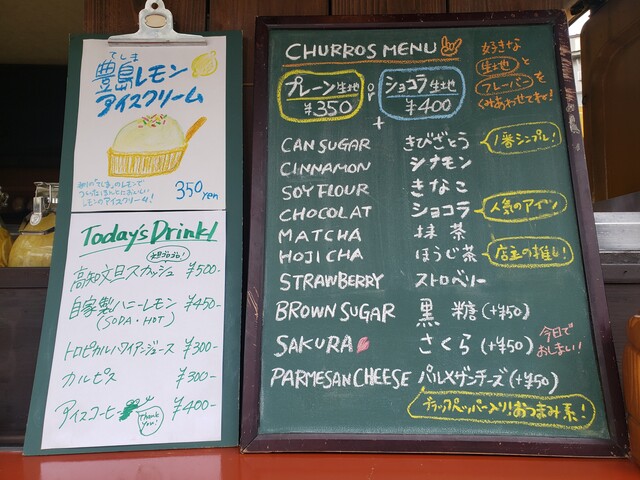 てしま
豊島レモン
アイスクリーム
レモンのアイスクリーム!
350yen
Today's Drink!
果肉ゴロゴロ!
高知文旦スカッシュ ¥500-
自家製ハニーレモン ¥450-
(SODA・HOT)
トロピカルハワイアンジュース ¥300-
カルピス ¥300-
アイスコーヒー ¥400-
Thank you!
CHURROS MENU
プレーン生地 ¥350
or
ショコラ生地 ¥400
+
好きな
生地と
フレーバーを
くみあわせてネ!
CANSUGAR きびざとう 1番シンプル!
CINNAMON シナモン
SOYFLOUR きなこ
CHOCOLAT ショコラ 人気のアイツ
MATCHA 抹茶
HOJICHA ほうじ茶 店主の推し!
STRAWBERRY ストロベリー
BROWN SUGAR 黒糖(+¥50)
SAKURA さくら(+¥50) 今日でおしまい!
PARMESAN CHEESE パルメザンチーズ(+¥50)
ブラックペッパー入り!おつまみ系!